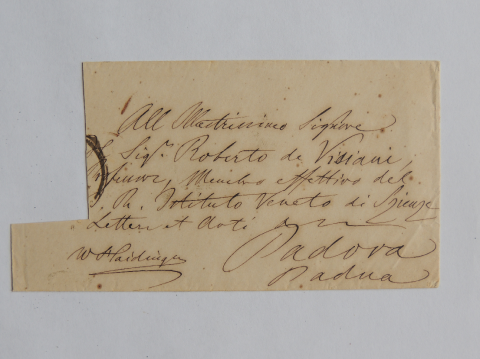 All Illustrissimo Signore
Sigr. Roberto de Visiani
Membro effettivo del
R. Istituto Veneto di Scienze
Lettere et Arti
Padova
W Haidinger
Padua